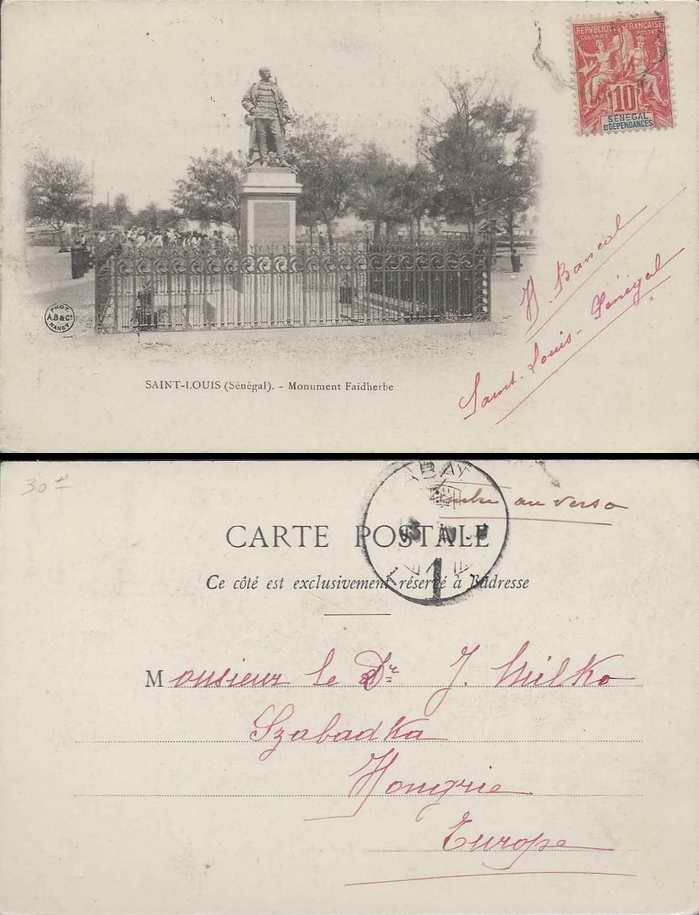 REPUBLIQUE FRANÇAISE
COLONIES POSTES
10
SÉNÉGAL
ET DÉPENDANCES
PHOT.
A.B & Cie
NANCY
SAINT-LOUIS (Sénégal). - Monument Faidherbe
Saint-Louis - Sénégal
30
au verso
CARTE POSTALE
Ce côté est exclusivement réservé à l'adresse
1
Monsieur le Dr J. Milko
Szabadka
Hongrie
Europe